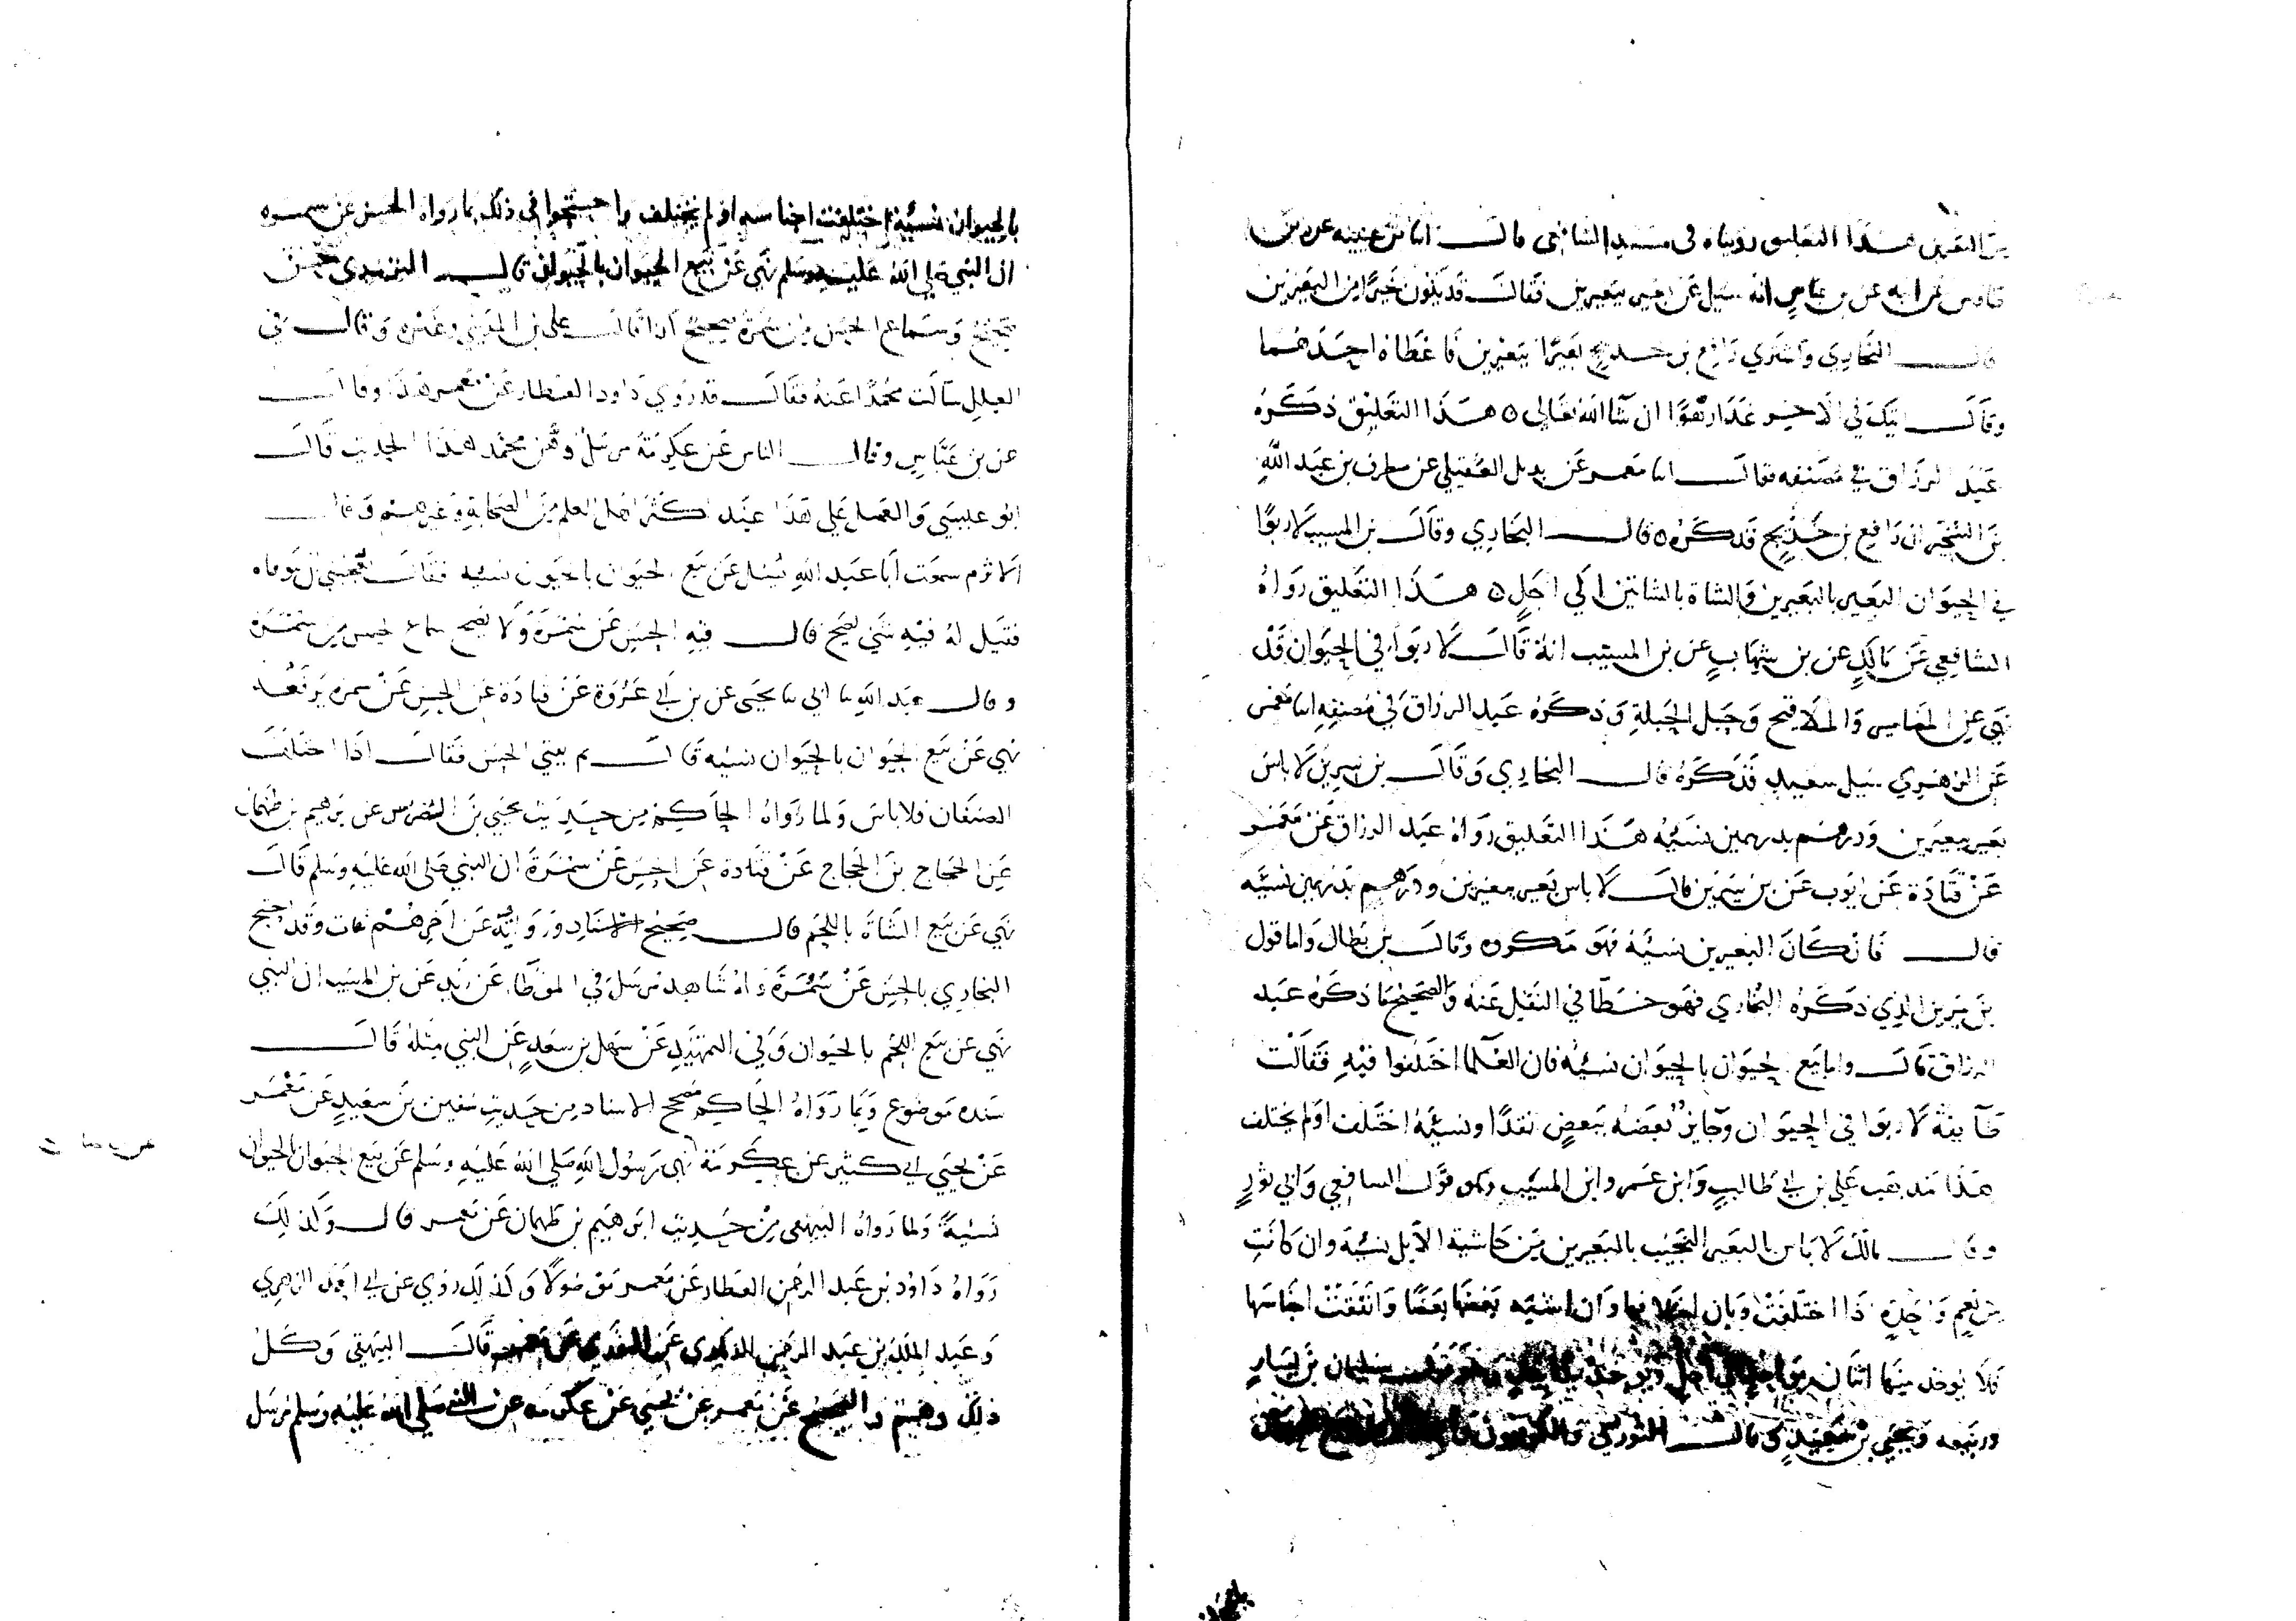 من البعيرين هذا التعليق رويناه في مسند الشافعي قال انا بن عيينه عن بن
طاوس عن ابيه عن بن عباس انه سيل عن بعير ببعيرين فقال قد يكون خيرا من البعيرين
قال البخاري واشتري رافع بن خديج بعيرا ببعيرين فاعطاه احدهما
وقال اتيك في الاخر غدا رهوا ان شا الله تعالي ه هذا التعليق ذكره
عبد الرزاق في مصنفه فقال انا معمر عن بديل العقيلي عن مطرف بن عبد الله
بن الشخير ان رافع بن خديج فذكره ه قال البخاري وقال بن المسيب لا ربوا
في الحيوان البعير بالبعيرين والشاة بالشاتين الي اجل ه هذا التعليق رواه
الشافعي عن مالك عن بن شهاب عن بن المسيب انه قال لا ربوا في الحيوان قد
نهي عن المضامين والملاقيح وحبل الحبلة وذكره عبد الرزاق في مصنفه انا معمر
عن الزهري سيل سعيد فذكره قال البخاري وقال بن سيرين لا باس
بعير ببعيرين ودرهم بدرهمين نسيئه هذا التعليق رواه عبد الرزاق عن معمر
عن قتادة عن ايوب عن بن سيرين قال لا باس بعير ببعيرين ودرهم بدرهمين نسئه
قال فان كان البعيرين نسئة فهو مكروه وقال بن بطال واما قول
بن سيرين الذي ذكره البخاري فهو خطا في النقل عنه والصحيح ما ذكره عبد
الرزاق قال واما بيع الحيوان بالحيوان نسيئه فان العلما اختلفوا فيه فقالت
طآيفة لا ربوا في الحيوان وجايز بعضه ببعض نقدا ونسيئه اختلف او لم يختلف
هذا مذهب علي بن ابي طالب وابن عمر وابن المسيب وهو قول الشافعي وابي ثور
وقال مالك لا باس بالبعير النجيب بالبعيرين من حاشية الابل نسئة وان كانت
من نعم واحدة اذا اختلفت وبان اختلافها وان اشبه بعضها بعضا واتفقت اجناسها
فلا يوخذ منها اثنان بواحد الي اجل ويوخذ يدا بيد وهو قول سليمان بن يسار
وربيعه ويحيي بن سعيد وقال الثوري والكوفيون
بالحيوان نسئية اختلفت اجناسه او لم يختلف واحتجوا في ذلك بما رواه الحسن عن سمره
ان النبي صلي الله عليه وسلم نهي عن بيع الحيوان بالحيوان قال الترمذي حسن
صحيح وسماع الحسن من سمرة صحيح كذا قال علي بن المديني وغيره وقال في
العلل سالت محمدا عنه فقال قد روي داود العطار عن معمر هذا وقال
عن بن عباس وقال الناس عن عكرمة مرسل ووهن محمد هذا الحديث قال
ابو عيسي والعمل علي هذا عند اكثر اهل العلم من الصحابة وغيرهم وقال
الاثرم سمعت ابا عبد الله يسئل عن بيع الحيوان بالحيوان نسئه فقال يعجبني ان يتوقاه
فقيل له فيه شي يصح قال فيه الحسن عن سمرة ولا يصح سماع الحسن من سمرة
وقال عبد الله نا ابي نا يحيي عن بن ابي عروة عن قتادة عن الحسن عن سمره يرفعه
نهي عن بيع الحيوان بالحيوان نسئه قال ثم يبتي الحسن فقال اذا اختلف
الصنفان فلا باس ولما رواه الحاكم من حديث يحيي بن الضريس عن ابرهيم بن طهمان
عن الحجاج بن الحجاج عن قتادة عن الحسن عن سمرة ان النبي صلي الله عليه وسلم قال
نهي عن بيع الشاة باللحم قال صحيح الاسناد ورواته عن اخرهم ثقات وقد احتج
البخاري بالحسن عن سمرة وله شاهد مرسل في الموطا عن زيد عن بن المسيب ان النبي
نهي عن بيع اللحم بالحيوان وفي التمهيد عن سهل بن سعد عن النبي مثله قال
سنده موضوع وبما رواه الحاكم صحيح الاسناد من حديث سفين بن سعيد عن معمر
عن يحيي ابي كثير عن عكرمة نهي رسول الله صلي الله عليه وسلم عن بيع الحيوان بالحيوان
نسئية ولما رواه البيهقي من حديث ابرهيم بن طهمان عن معمر قال وكذلك
رواه داود بن عبد الرحمن العطار عن معمر موصولا وكذلك روي عن ابي احمد الزهري
وعبد الملك بن عبد الرحمن الذماري عن الثوري عن معمر قال البيهقي وكل
ذلك وهم والصحيح عن معمر عن يحيي عن عكرمه عن النبي صلي الله عليه وسلم مرسل